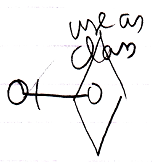 use as
class